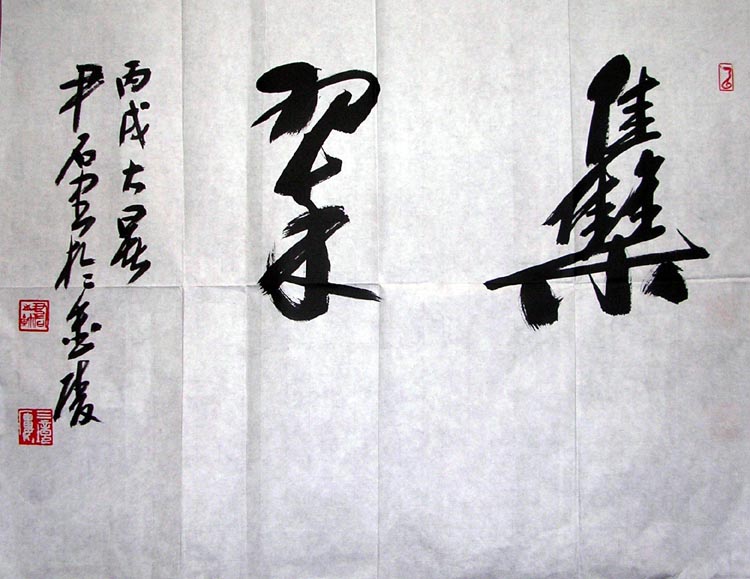 雧翠
丙戌大暑
尹石書於金陵